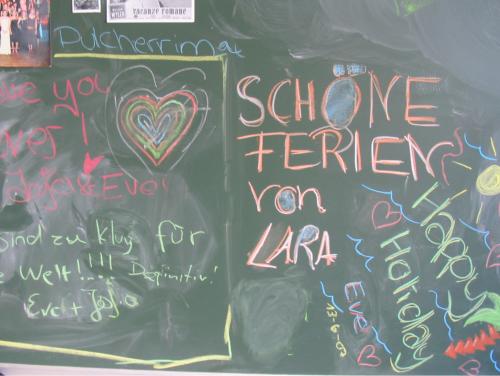 vacanze romane
Pulcherrimae
you
ever!
& Eve!
sind zu klug für
Welt!!!! Definitiv!
Eve +
SCHÖNE
FERIEN
von
LARA
Happy
Holiday
Eve